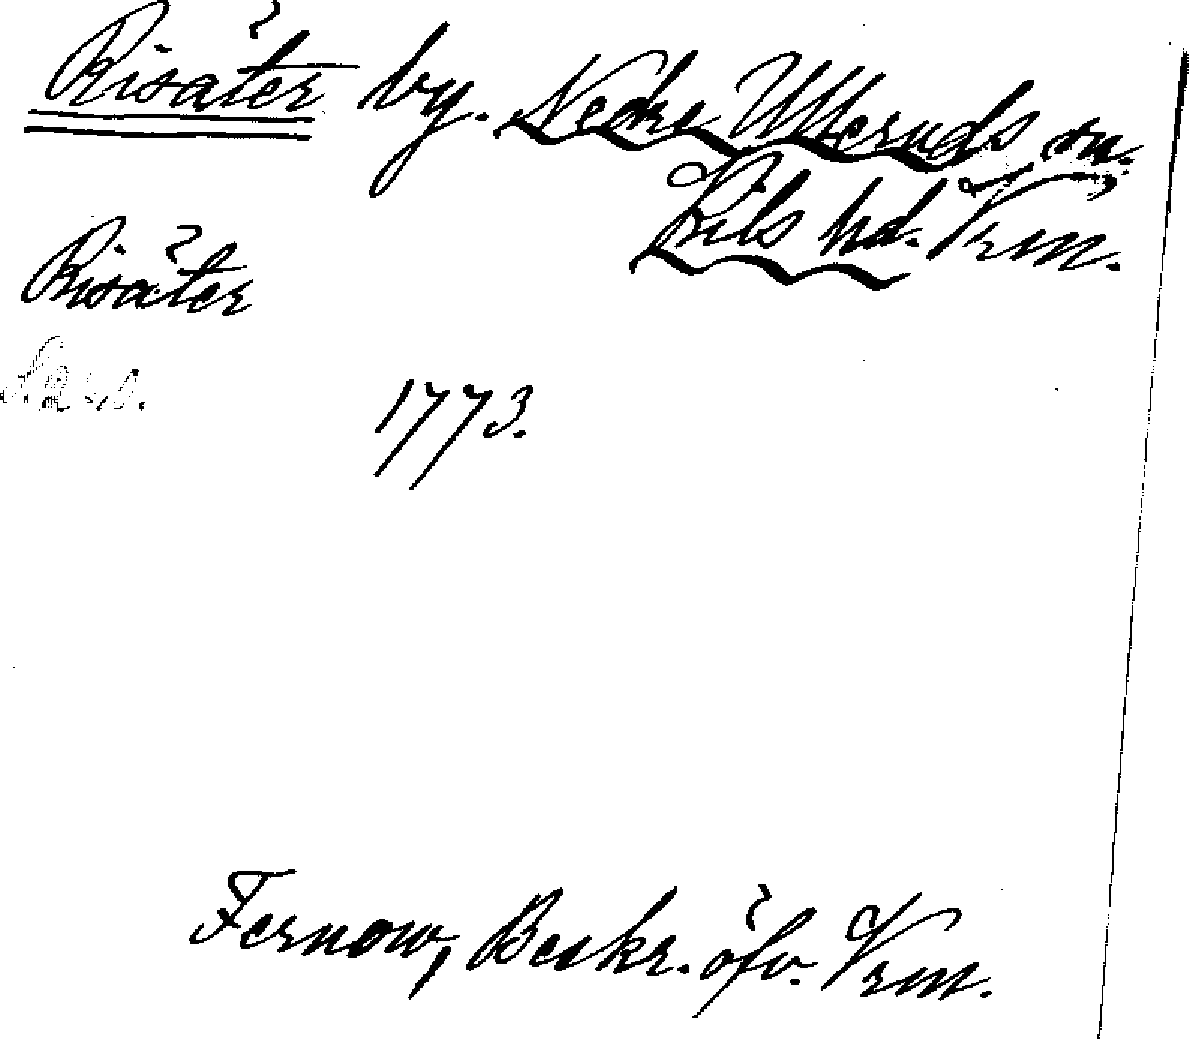 Risäter by. Nedre Ulleruds sn.
Kils hd. Vrm.
Risäter
1773.
Fernow, Beskr. öfv. Vrm.